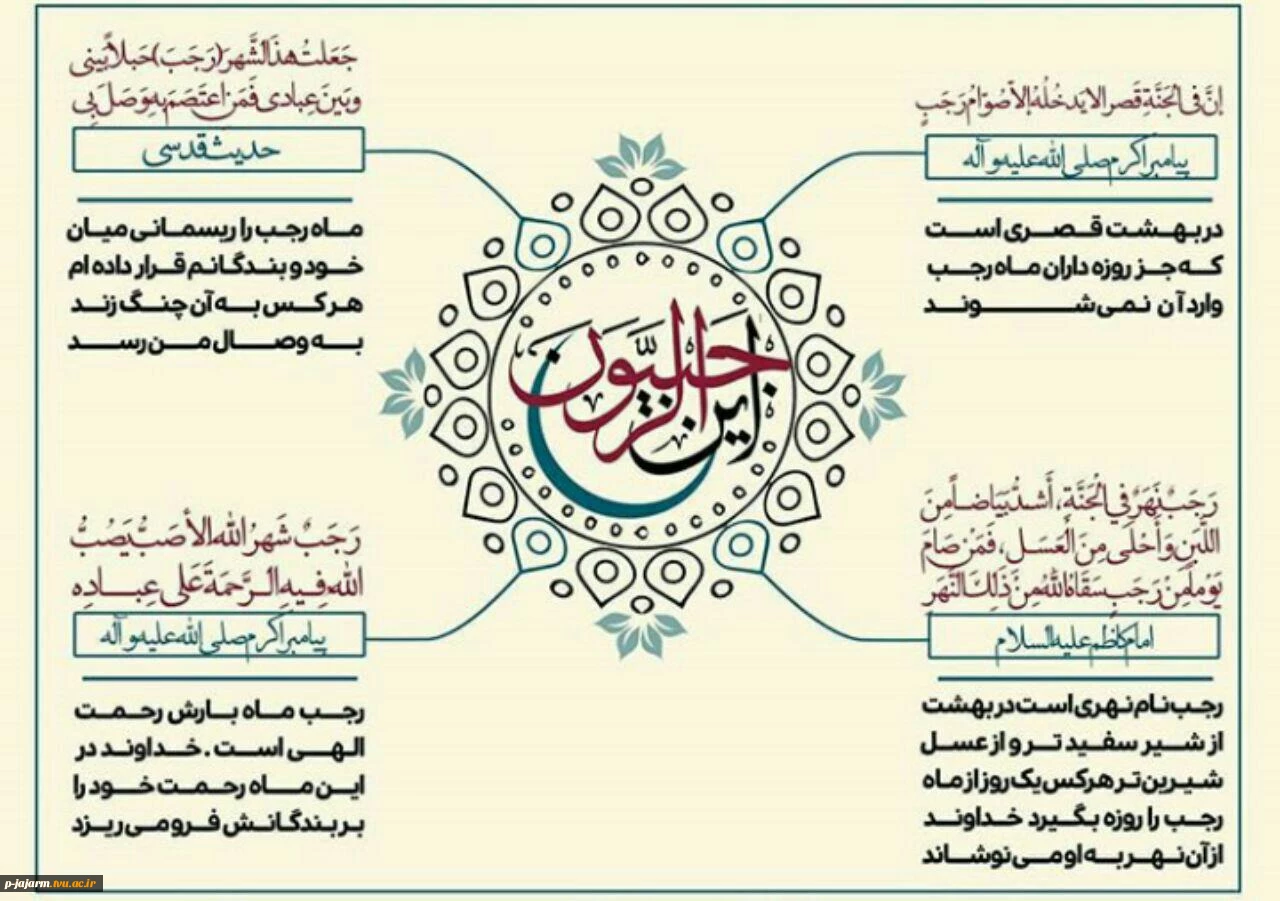 إنَّ فی الجَنَّةِ قَصر الا یَدخُلُهُ إلاّ صُوّامُ رَجَبٍ
پیامبر اکرم صلی الله علیه و آله
در بهشت قصری است
که جز روزه داران ماه رجب
وارد آن نمی شوند
جَعَلتُ هذَا الشَّهرَ (رَجَبَ) حَبلاً بَینی
وَبَینَ عِبادی فَمَنِ اعتَصَمَ بِهِ وَصَلَ بِی
حدیث قدسی
ماه رجب را ریسمانی میان
خود و بندگانم قرار داده ام
هر کس به آن چنگ زند
به وصال من رسد
این الرجبیون
رَجَبٌ نَهَرٌ فِي الْجَنَّةِ، أَشدُّ بَیَاضاً مِنَ
اللَّبَنِ وَ أَحْلَى مِنَ الْعَسَلِ، فَمَنْ صَامَ
یَوْماً مِنْ رَجَبٍ سَقَاهُ اللهُ مِنْ ذَلِكَ النَّهَر
امام کاظم علیه السلام
رجب نام نهری است در بهشت
از شیر سفید تر و از عسل
شیرین تر هرکس یک روز از ماه
رجب را روزه بگیرد خداوند
از آن نهر به او می نوشاند
رَجَبٌ شَهرُ اللهِ الأصَبُّ یَصُبُّ
اللهُ فِیهِ الرَّحمَةَ عَلی عِبادِهِ
پیامبر اکرم صلی الله علیه و آله
رجب ماه بارش رحمت
الهی است . خداوند در
این ماه رحمت خود را
بر بندگانش فرو می ریزد
p-jajarm.tvu.ac.ir